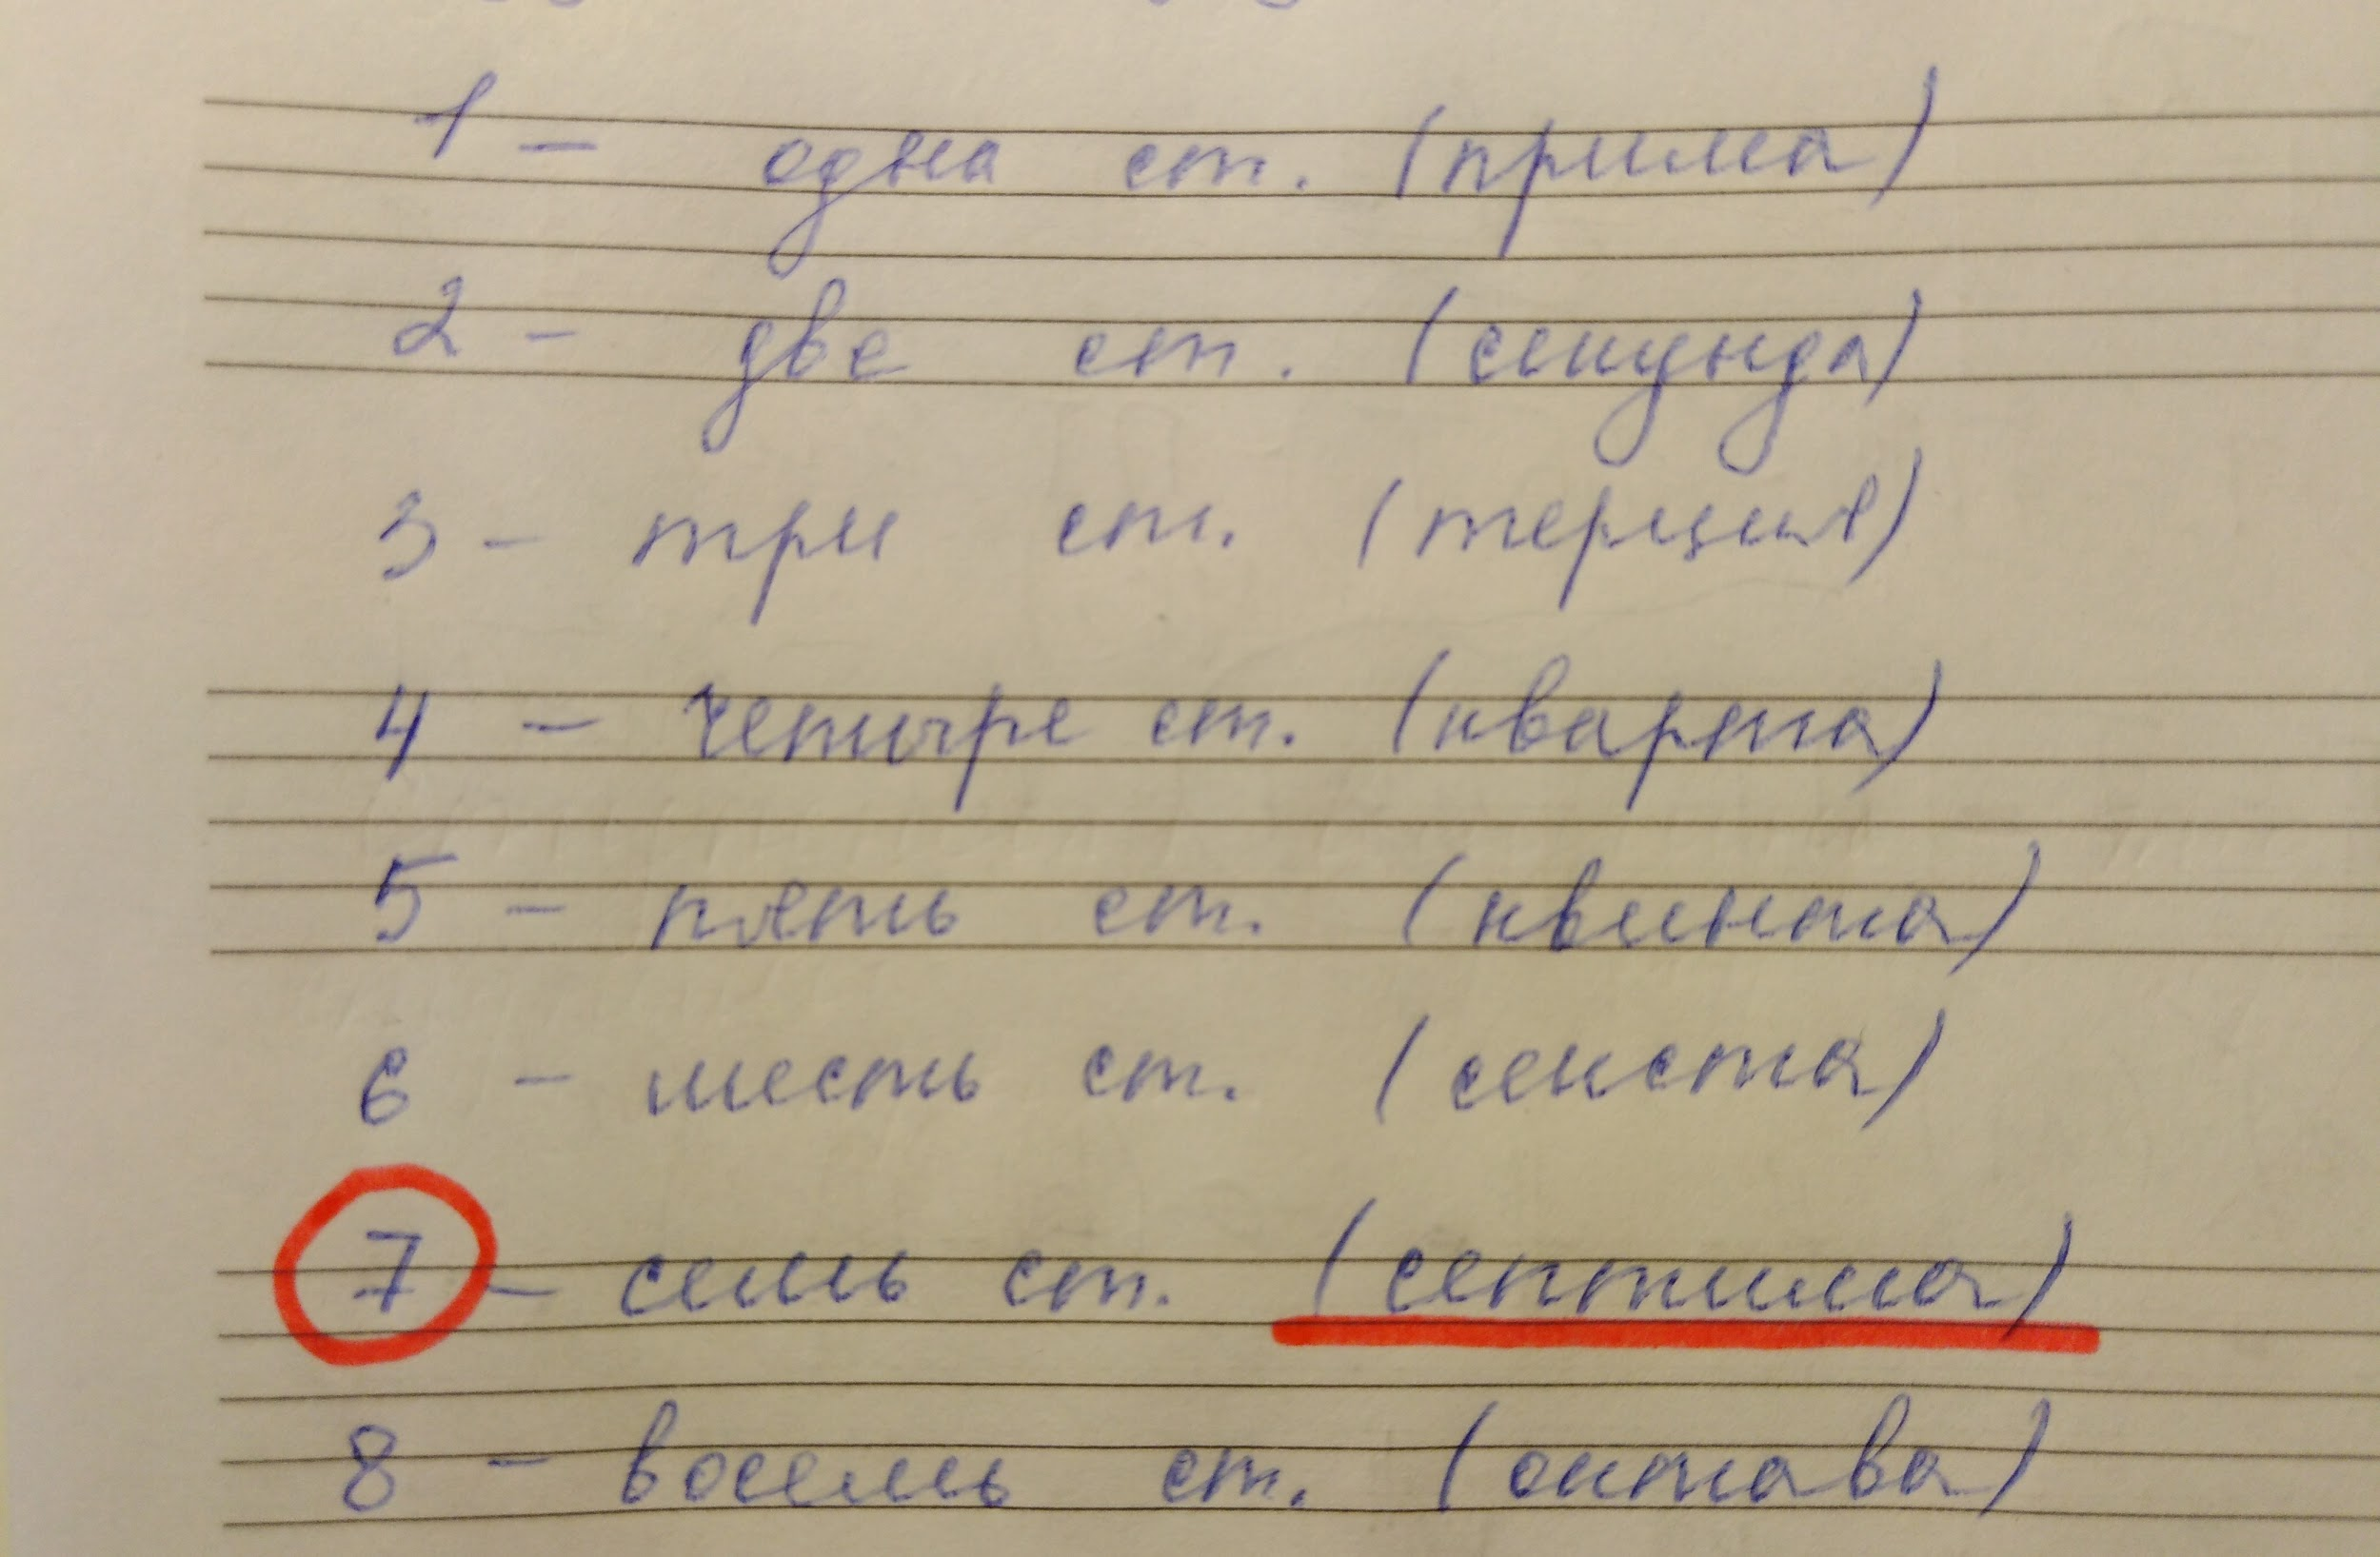 1 - одна ст. (прима)
2 - две ст. (секунда)
3 - три ст. (терция)
4 - четыре ст. (кварта)
5 - пять ст. (квинта)
6 - шесть ст. (секста)
7 - семь ст. (септима)
8 - восемь ст. (октава)